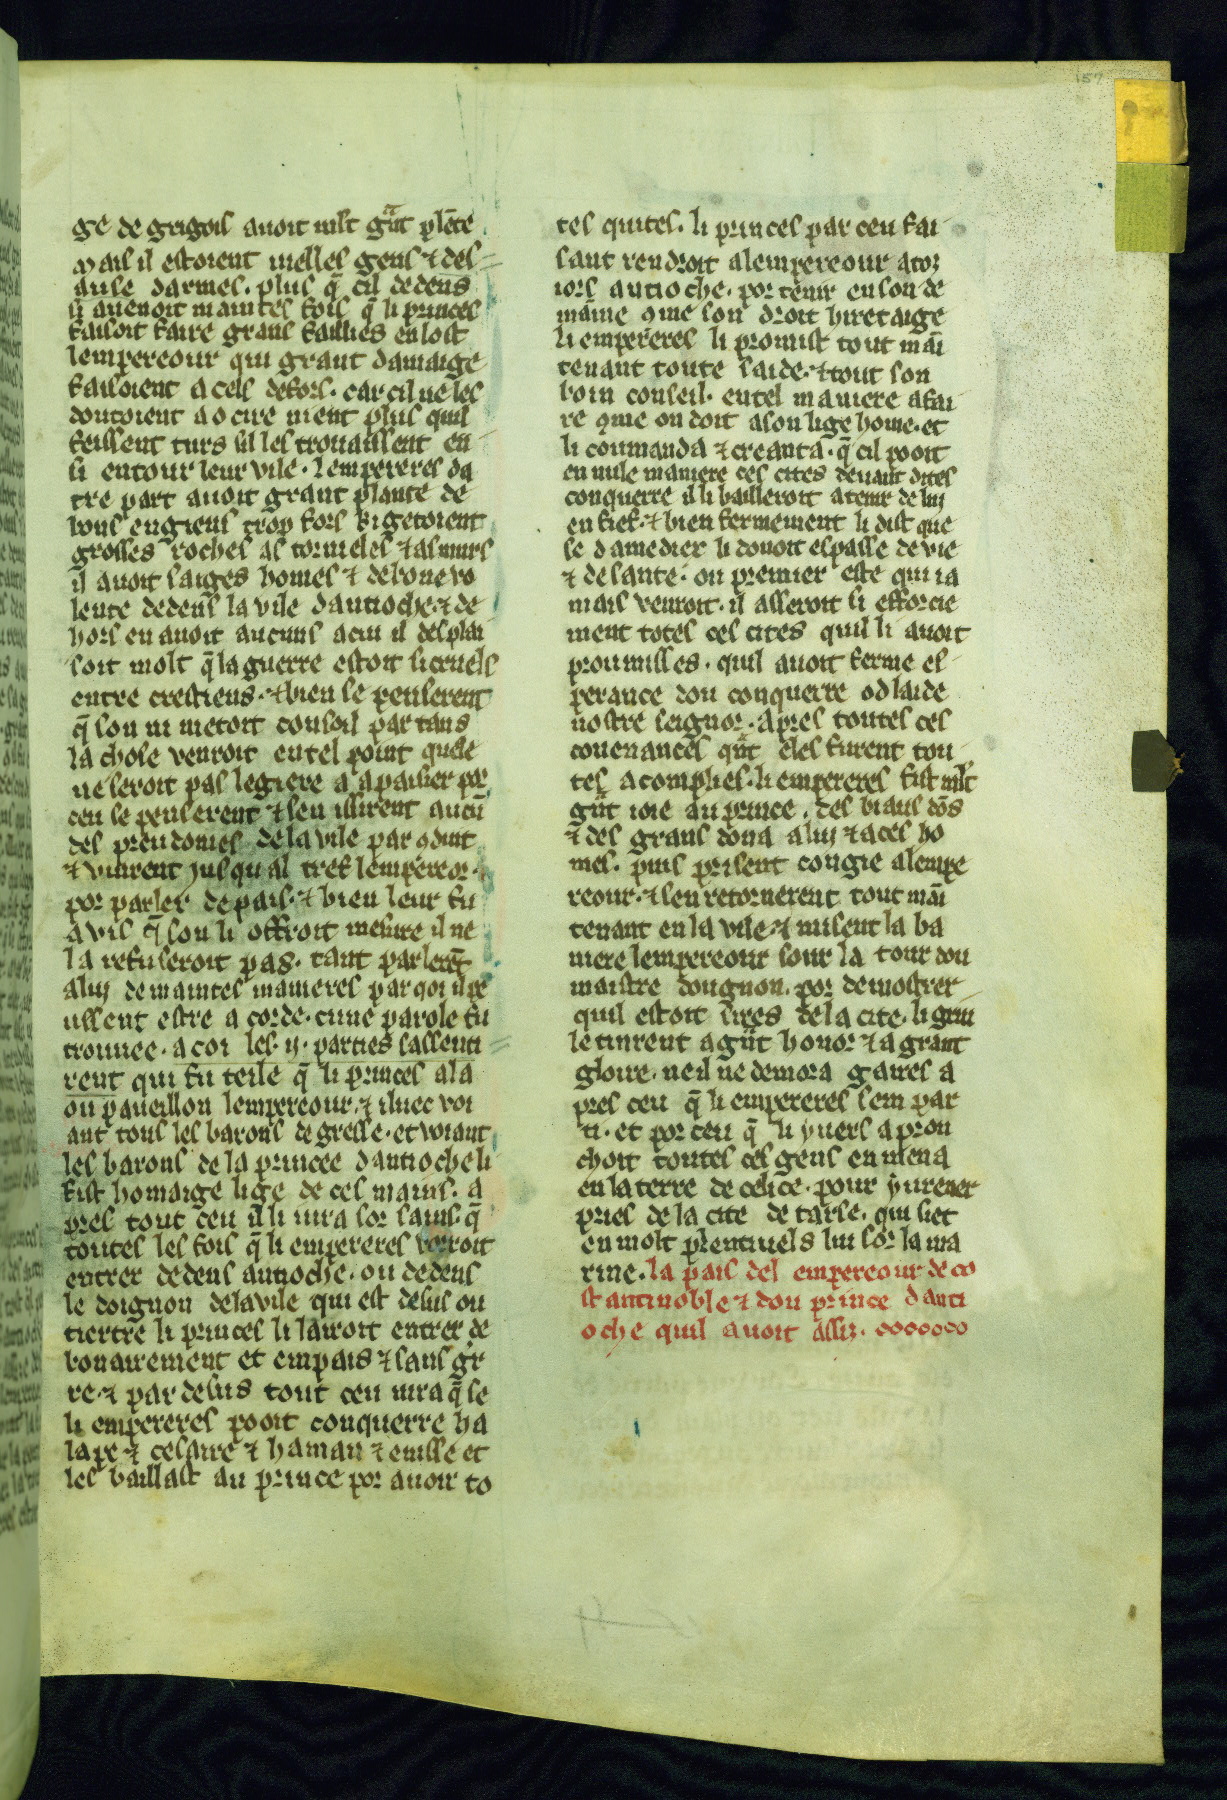 157
ge de grigois auoit mlt gͣnt plēte
mais il estoient melles gens ⁊ des
aise darmes. plus q̄ cil dedens
si auenoit maintes fois q̄ li princes
faisoit faire grans saillies en lost
lempereour qui grant damaige
faisoient a cels defors. car cil ne les
doutoient a ocire nient plus quil
feissent turs sil les trouaissent en
si entour leur vile. lempereres da
tre part auoit grant plante de
bons engiens trop fors ki getoient
grosses roches as torneles ⁊ as murs
il auoit saiges homes ⁊ de bone vo
lente dedens la vile dantioche. ⁊ de
hors en auoit aucuns a cui il desplai
soit molt q̄ la guerre estoit si cruels
entre crestiens. ⁊ bien se penserent
q̄ son ni metoit consoil par tans
la chose venroit en tel point quele
ne seroit pas legiere a apaisier por
ceu se penserent ⁊ sen issirent aucū
des preudomes de la vile par 9duit
⁊ vinrent jusqual tref lempereor.
por parler de pais. ⁊ bien leur fu
avis q̄ son li offroit mesure il ne
la refuseroit pas. tant parlerēt
a luy de maintes manieres par qoi il pe
ussent estre a corde. cune parole fu
trouuee. a coi les .ij. parties sassenti
rent qui fu teile q̄ li princes ala
ou paueillon lempereour. ⁊ iluec voi
ant tous les barons de gresse. et voiant
les barons de la princee dantioche li
fist homaige lige de ces mains. a
pres tout ceu il li iura sor sains. q̄
toutes les fois q̄ li empereres verroit
entrer dedens antioche. ou dedens
le doignon de la vile qui est desus ou
tiertre li princes li lairoit entrer de
bonairement et em pais ⁊ sans gr
re. ⁊ par desus tout ceu iura q̄ se
li empereres pooit conquerre ha
lape ⁊ cesaire ⁊ haman ⁊ emisse et
les baillast au prince por auoir to
tes quites. li princes par ceu fai
sant rendroit alempereour a toz
iors antioche. por tenir en son de
maine 9me son droit hiretaige
li empereres li promist tout māi
tenant toute saide. ⁊ tout son
boin conseil. en tel maniere a fai
re 9me on doit a son lige home. et
li coumanda ⁊ creanta. q̄ cil pooit
en nule maniere ces cites deuant dites
conquerre il li bailleroit a tenir de luy
en fief. ⁊ bien fermement li dist que
se damedier li donoit espasse de vie
⁊ de sante. ou premier este qui ia
mais venroit. il asseroit si efforcie
ment totes ces cites quil li auoit
proumisses. quil auoit ferme es
perance dou conquerre od laide
nostre seignor. apres toutes ces
couenances qͣnt eles furent tou
tes acomplies. li empereres fist mlt
gͣnt ioie au prince. des biaus dōs
⁊ des grans dona a luy ⁊ a ces ho
mes. puis prisent congie alempe
reour. ⁊ sen retornerent tout māi
tenant en la vile. ⁊ misent la ba
niere lempereour sour la tour dou
maistre dougnon. por demostrer
quil estoit sires de la cite. li griu
le tinrent a gͣnt honor ⁊ a grant
gloire. ne il ne demora gaires a
pres ceu q̄ li empereres sem par
ti. et por ceu q̄ li yuers aprou
choit toutes ces gens en mena
en la terre de celice. pour yurener
pries de la cite de tarse. qui siet
en molt plentiuels liu sor la ma
rine. la pais del empereour de co
stantinoble ⁊ dou prince danti
oche quil auoit assiz.